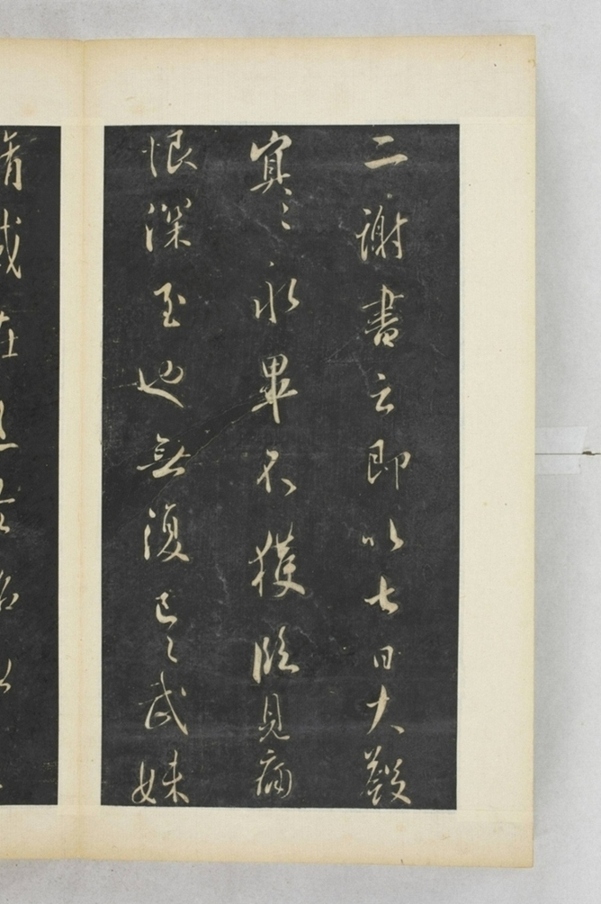 二謝書云即以七日大殮
冥〻永畢不獲臨見痛
恨深至也無復已〻武妹